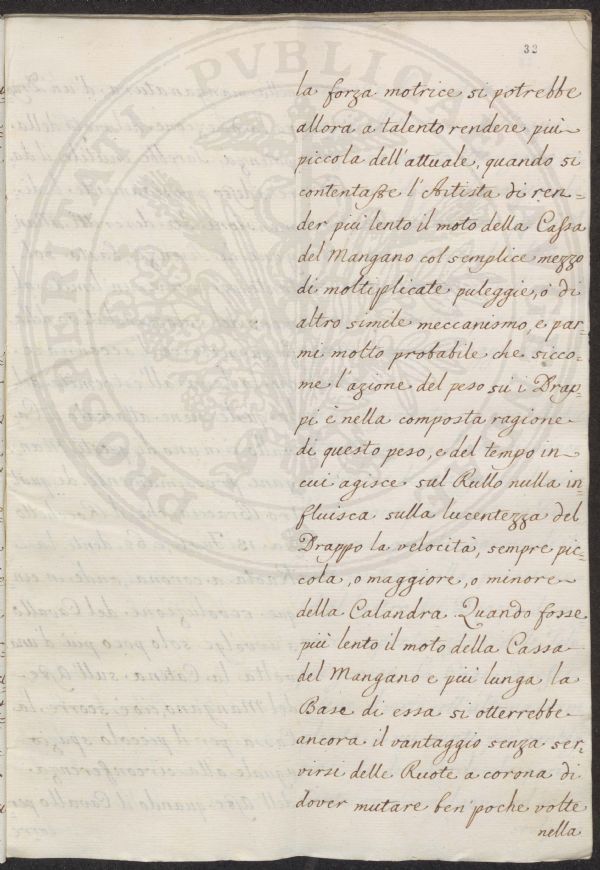 32
PROSPERITATI PVBLICAE
la forza motrice si potrebbe
allora a talento rendere più
piccola dell'attuale, quando si
contentasse l'Artista di ren-
der più lento il moto della Cassa
del Mangano col semplice mezzo
di moltiplicate puleggie, o di
altro simile meccanismo, e par-
mi molto probabile che sicco-
me l'azione del peso su i Drap-
pi è nella composta ragione
di questo peso, e del tempo in
cui agisce sul Rullo nulla in-
fluisca sulla lucentezza del
Drappo la velocità, sempre pic-
cola, o maggiore, o minore
della Calandra. Quando fosse
più lento il moto della Cassa
del Mangano e più lunga la
Base di essa si otterrebbe
ancora il vantaggio senza ser-
virsi delle Ruote a corona di
dover mutare ben poche volte
nella